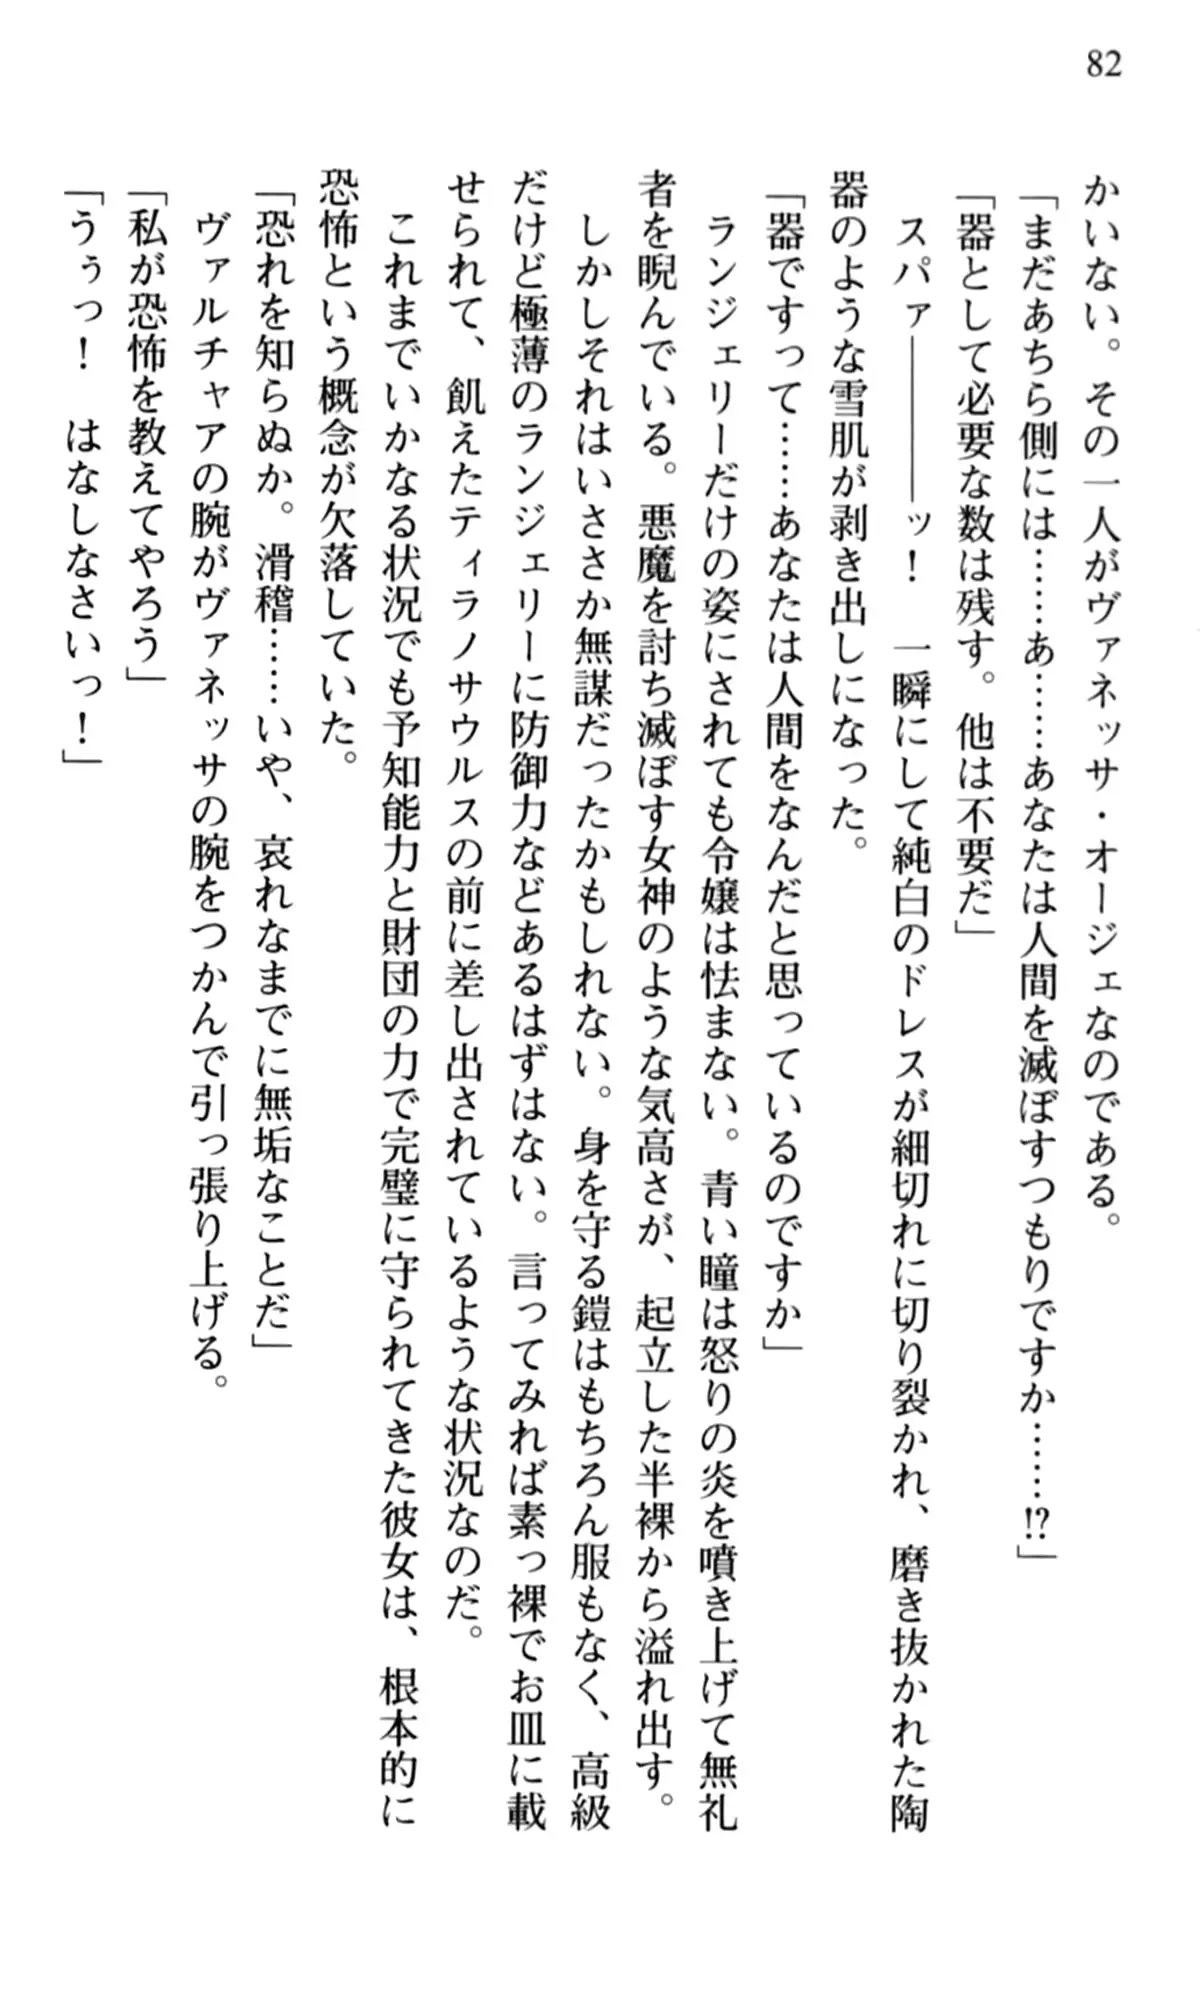 82
かいない。その一人がヴァネッサ・オージェなのである。
「まだあちら側には……あ……あなたは人間を滅ぼすつもりですか……!?」
「器として必要な数は残す。他は不要だ」
　スパァ――――ッ！　一瞬にして純白のドレスが細切れに切り裂かれ、磨き抜かれた陶
器のような雪肌が剥き出しになった。
「器ですって……あなたは人間をなんだと思っているのですか」
　ランジェリーだけの姿にされても令嬢は怯まない。青い瞳は怒りの炎を噴き上げて無礼
者を睨んでいる。悪魔を討ち滅ぼす女神のような気高さが、起立した半裸から溢れ出す。
　しかしそれはいささか無謀だったかもしれない。身を守る鎧はもちろん服もなく、高級
だけど極薄のランジェリーに防御力などあるはずはない。言ってみれば素っ裸でお皿に載
せられて、飢えたティラノサウルスの前に差し出されているような状況なのだ。
　これまでいかなる状況でも予知能力と財団の力で完璧に守られてきた彼女は、根本的に
恐怖という概念が欠落していた。
「恐れを知らぬか。滑稽……いや、哀れなまでに無垢なことだ」
　ヴァルチャアの腕がヴァネッサの腕をつかんで引っ張り上げる。
「私が恐怖を教えてやろう」
「うぅっ！　はなしなさいっ！」